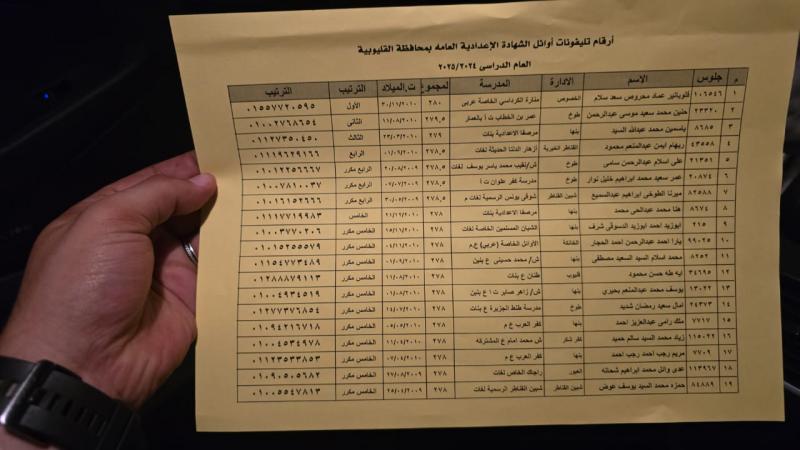 أرقام تليفونات أوائل الشهادة الإعدادية العامه بمحافظة القليوبية
العام الدراسى ٢٠٢٥/٢٠٢٤
م جلوس الاسم الادارة المدرسة المجموع ت.الميلاد الترتيب الترتيب
١ ١٠٦٥٤٦ عماد محروص سعد سلام الخصوص منارة الكرداسي الخاصة عربى ٢٨٠ ٣٠/١١/٢٠١٠ الأول ٠١٥٥٧٧٢٠٥٩٥
٢ ٢٣٣٢٠ حنين محمد سعيد موسى عبدالرحمن طوخ عمر بن الخطاب ت أ بالعمار ٢٧٩,٥ ١١/٠٨/٢٠١٠ الثانى ٠١٠٠٢٧٦٨٦٥٤
٣ ٨٦٨٥ ياسمين محمد عبدالله السيد بنها مرصفا الاعدادية بنات ٢٧٩ ٢٣/٠٣/٢٠١٠ الثالث ٠١١٢٧٣٥٠٤٥٠
٤ ٤٣٥٥٨ ريهام ايمن عبدالمنعم محمود القناطر الخيرية أزهار الدلتا الحديثة لغات ٢٧٨,٥ ٠١/٠٦/٢٠١٠ الرابع ٠١١١٩٦٢٩١٦٦
٥ ٢١٣٥١ على اسلام عبدالرحمن سامى طوخ ش/نقيب محمد ياسر يوسف لغات ٢٧٨,٥ الرابع مكرر ٠١٠١٢٢٥٦٦٦٧
٦ ٢٠٨٧٤ عمر سعيد محمد ابراهيم خليل نوار طوخ مدرسة كفر علوان ت أ ٢٧٨,٥ الرابع مكرر ٠١٠٠٧٨١٠٠٣٧
٧ ٨٢٥٨٨ ميرنا الطوخى ابراهيم عبدالسميع شبين القناطر شوقى يونس الرسمية لغات م ٢٧٨,٥ الرابع مكرر ٠١٠١٦١٥٢٦٦٦
٨ ٨٦٧٤ هنا محمد عبدالحى محمد بنها مرصفا الاعدادية بنات ٢٧٨ ٢١/١٢/٢٠١٠ الخامس ٠١١١٧٧١٩٩٨٣
٩ ٢١٥ ابوزيد احمد ابوزيد الدسوقى شرف بنها الشبان المسلمين الخاصة لغات ٢٧٨ ١٥/١١/٢٠١٠ الخامس مكرر ٠١٠٠٣٧٧٠٢٠٦
١٠ ٩٩٠٢٥ يارا احمد عبدالرحمن احمد الخانكة الاوائل الخاصة (عربى) ع.م ٢٧٨ ٠٤/١١/٢٠١٠ الخامس مكرر ٠١٠١٥٢٥٥٥٧٩
١١ ٨٢٥٢ محمد اسلام السيد السعيد مصطفى بنها ش/ محمد حسينى ع بنين ٢٧٨ ٠١/٠٩/٢٠١٠ الخامس مكرر ٠١١٥٤٧٧٣٤٨٩
١٢ ٣٤٦٩٥ ايه طه حسن محمود قليوب طنان ع بنات ٢٧٨ ١١/٠٨/٢٠١٠ الخامس مكرر ٠١٢٨٨٨٧٩١١٣
١٣ ١٣٠٢٢ يوسف محمد عبدالمنعم بحيرى بنها ش/ زاهر صابر ت ا ع بنين ٢٧٨ ٠١/٠٨/٢٠١٠ الخامس مكرر ٠١٠٠٤٩٣٤٥١٩
١٤ ٢٤٣٧٣ امال سعيد رمضان شديد طوخ مدرسة طنط الجزيرة ع بنات ٢٧٨ ١٤/٠٧/٢٠١٠ الخامس مكرر ٠١٢٧٧٣٧٦٨٥٤
١٥ ٧٧١٧ ملك رامى عبدالعزيز احمد بنها كفر العرب ع م ٢٧٨ ٠٥/٠٥/٢٠١٠ الخامس مكرر ٠١٠٩٤٢١٦٧١٨
١٦ ١١٥٠٢٢ زياد محمد السيد سالم حميد كفر شكر ش محمد امام ع المشتركه ٢٧٨ ١١/٠٤/٢٠١٠ الخامس مكرر ٠١٠٠٤٥٣٤٩٧٨
١٧ ٧٧٠٩ مريم رجب احمد رجب احمد بنها كفر العرب ع م ٢٧٨ ٠٧/٠٤/٢٠١٠ الخامس مكرر ٠١١٢٣٥٣٣٨٥٣
١٨ ١١٣٩٦٧ عدى وائل محمد ابراهيم شحاته العبور راجاك الخاص لغات ٢٧٨ ٢٧/٠٨/٢٠٠٩ الخامس مكرر ٠١٠٩٠٥٠٥٦٨٢
١٩ ٨٤٨٨٩ حمزه محمد السيد يوسف عوض شبين القناطر شبين القناطر الرسمية لغات ٢٧٨ ٢٥/٠٤/٢٠٠٩ الخامس مكرر ٠١٠٠٥٥٤٧٨١٣